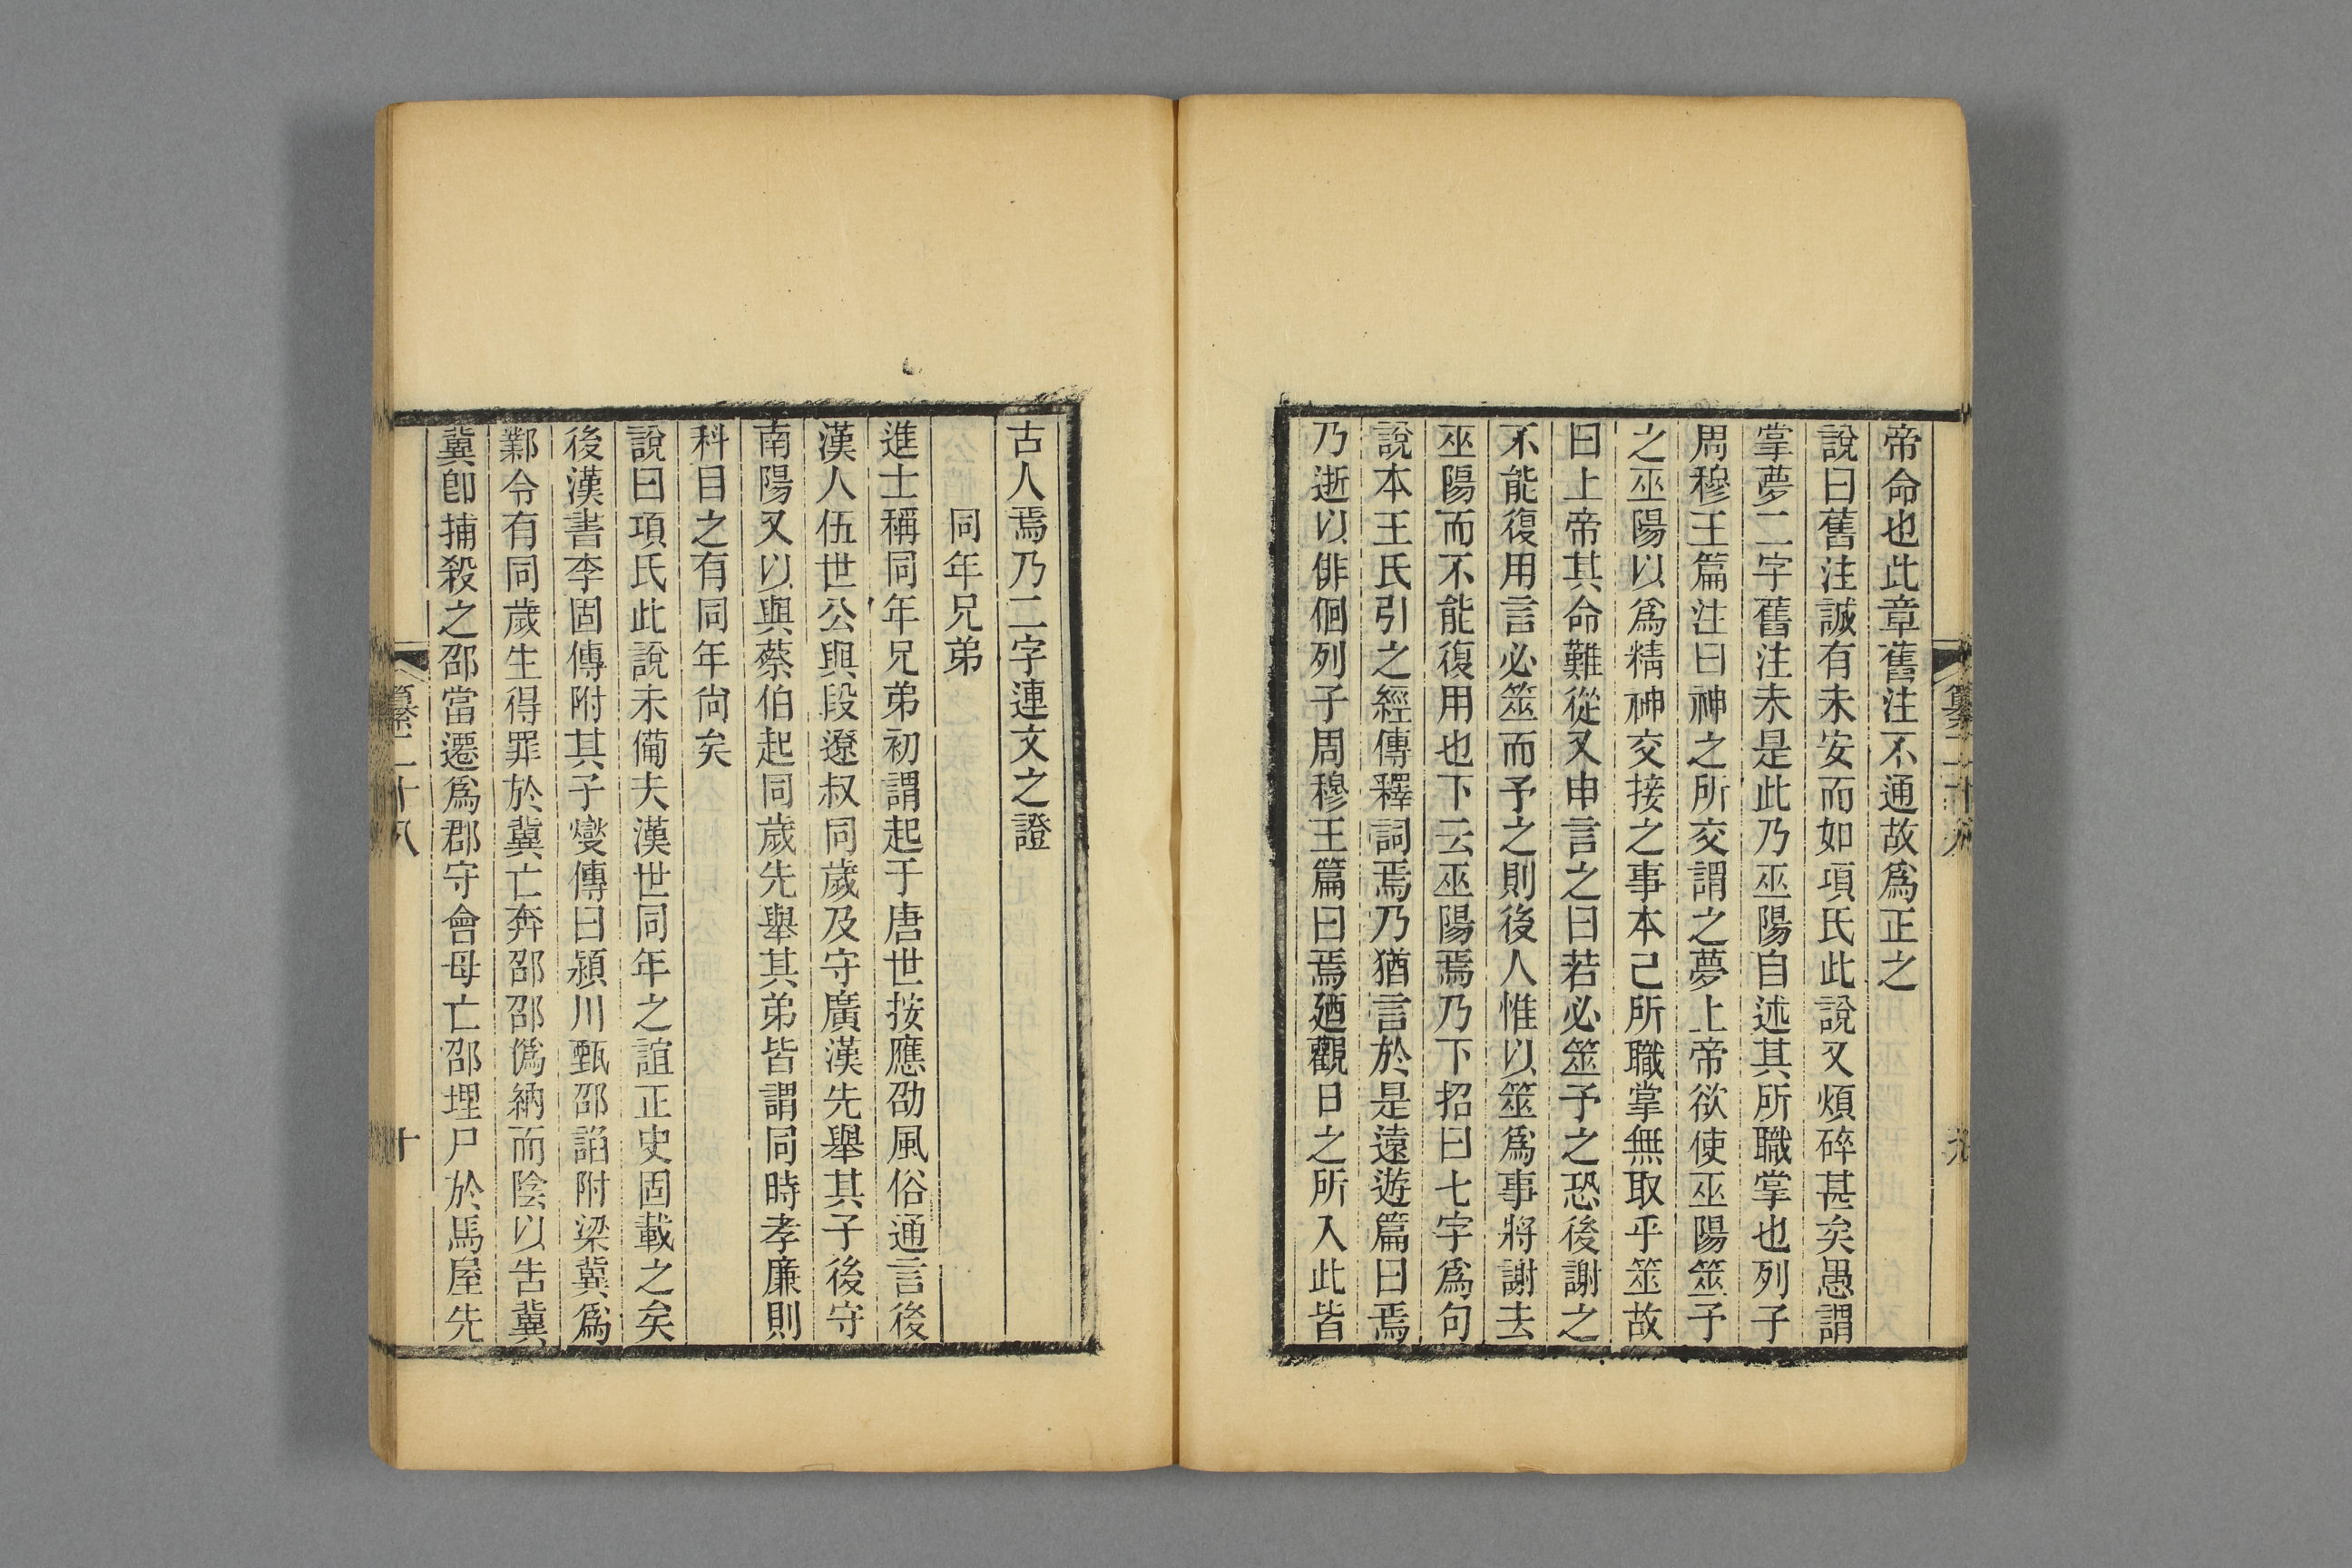 帝命也此章舊注不通故爲正之
說曰舊注誠有未安而如項氏此說又煩碎甚矣愚謂
掌夢二字舊注未是此乃巫陽自述其所職掌也列子
周穆王篇注曰神之所交謂之夢上帝欲使巫陽筮予
之巫陽以爲精神交接之事本己所職掌無取乎筮故
曰上帝其命難從又申言之曰若必筮予之恐後謝之
不能復用言必筮而予之則後人惟以筮爲事將謝去
巫陽而不能復用也下云巫陽焉乃下招曰七字爲句
說本王氏引之經傳釋詞焉乃猶言於是遠遊篇曰焉
乃逝以俳佪列子周穆王篇曰焉廼觀日之所入此皆
古人焉乃二字連文之證
同年兄弟
進士稱同年兄弟初謂起于唐世按應劭風俗通言後
漢人伍世公與段遼叔同歲及守廣漢先舉其子後守
南陽又以與蔡伯起同歲先舉其弟皆謂同時孝廉則
科目之有同年尙矣
說曰項氏此說未備夫漢世同年之誼正史固載之矣
後漢書李固傳附其子燮傳曰潁川甄邵諂附梁冀爲
鄴令有同歲生得罪於冀亡奔邵邵僞納而陰以告冀
冀卽捕殺之邵當遷爲郡守會母亡邵埋尸於馬屋先
纂二十八
十